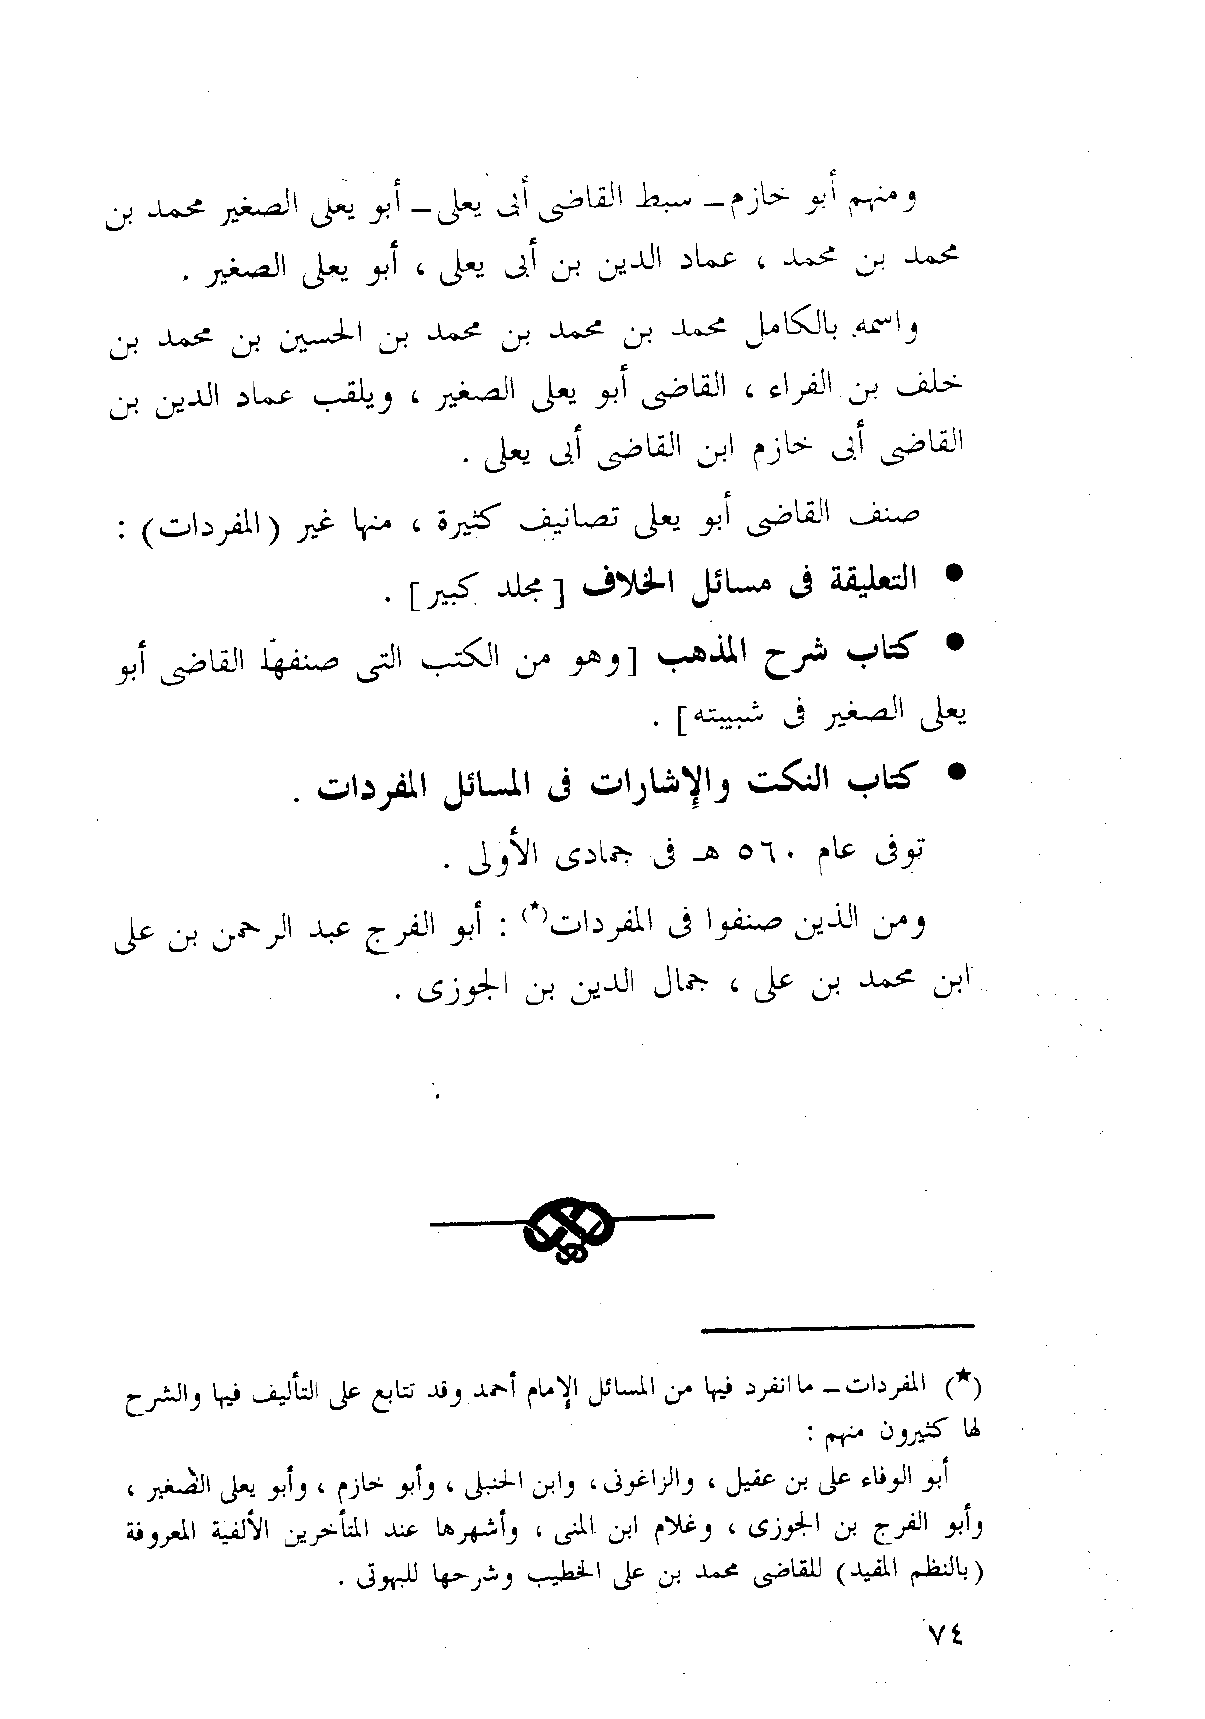 ومنهم أبو خازم ــ سبط القاضى أبى يعلى ــ أبو يعلى الصغير محمد بن
محمد بن محمد ، عماد الدين بن أبى يعلى ، أبو يعلى الصغير .
واسمه بالكامل محمد بن محمد بن محمد بن الحسين بن محمد بن
خلف بن الفراء ، القاضى أبو يعلى الصغير ، ويلقب عماد الدين بن
القاضى أبى خازم ابن القاضى أبى يعلى .
صنف القاضى أبو يعلى تصانيف كثيرة ، منها غير (المفردات) :
● التعليقة فى مسائل الخلاف [مجلد كبير] .
● كتاب شرح المذهب [وهو من الكتب التى صنفها القاضى أبو
يعلى الصغير فى شبيبته] .
● كتاب النكت والإشارات فى المسائل المفردات .
توفى عام ٥٦٠ هـ فى جمادى الأولى .
ومن الذين صنفوا فى المفردات(★) : أبو الفرج عبد الرحمن بن على
ابن محمد بن على ، جمال الدين بن الجوزى .
(★) المفردات ــ ما انفرد فيها من المسائل الإمام أحمد وقد تتابع على التأليف فيها والشرح
لها كثيرون منهم :
أبو الوفاء على بن عقيل ، والزاغونى ، وابن الحنبلى ، وأبو خازم ، وأبو يعلى الصغير ،
وأبو الفرج بن الجوزى ، وغلام ابن المنى ، وأشهرها عند المتأخرين الألفية المعروفة
(بالنظم المفيد) للقاضى محمد بن على الخطيب وشرحها للبهوتى .
٧٤